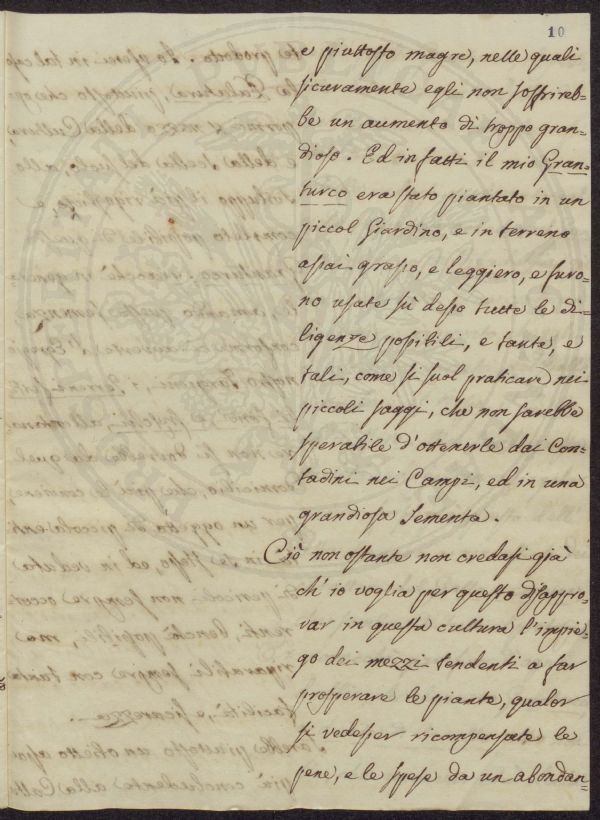 10
e piuttosto magre, nelle quali
sicuramente egli non soffrireb=
be un aumento di troppo gran=
dioso. Ed in fatti il mio Gran=
turco era stato piantato in un
piccol Giardino, e in terreno
assai grasso, e leggiero, e furo=
no usate sù desso tutte le di=
ligenze possibili, e tante, e
tali, come si suol praticare nei
piccoli saggi, che non sarebbe
sperabile d'ottenerle dai Con=
tadini nei Campi, ed in una
grandiosa Sementa.
Ciò non ostante non credasi già
ch'io voglia per questo disappro=
var in questa cultura l'impie=
go dei mezzi tendenti a far
prosperare le piante, qualor
si vedesser ricompensate le
pene, e le spese da un abondan=